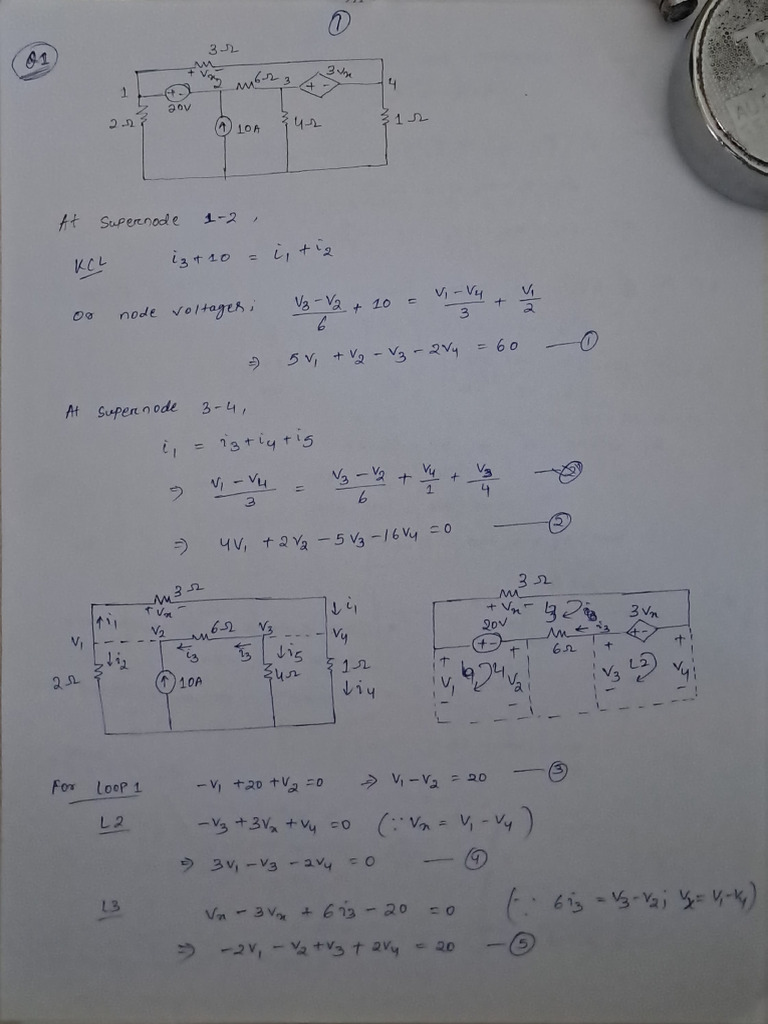 ①
Q1
3Ω
+ Vx -
1 2 6Ω 3 3Vx 4
+ - + -
20V
2Ω 10A 4Ω 1Ω
At Supernode 1-2,
KCL i3 + 10 = i1 + i2
Or node voltages; (V3 - V2)/6 + 10 = (V1 - V4)/3 + V1/2
⇒ 5V1 + V2 - V3 - 2V4 = 60 —①
At supernode 3-4,
i1 = i3 + i4 + i5
⇒ (V1 - V4)/3 = (V3 - V2)/6 + V4/1 + V3/4
⇒ 4V1 + 2V2 - 5V3 - 16V4 = 0 —②
3Ω
+ Vx -
↑i1 ↓i1
V1 V2 6Ω V3 V4
↓i2 ←i3 ←i3 ↓i5
2Ω 10A 4Ω 1Ω
↓i4
3Ω
+ Vx - L3
20V 3Vx
+ - ←i3 + -
6Ω
+ + + +
V1 V2 V3 L2 V4
- - - -
For LOOP 1 -V1 + 20 + V2 = 0 ⇒ V1 - V2 = 20 —③
L2 -V3 + 3Vx + V4 = 0 (∵ Vx = V1 - V4)
⇒ 3V1 - V3 - 2V4 = 0 —④
L3 Vx - 3Vx + 6i3 - 20 = 0 (∵ 6i3 = V3 - V2; Vx = V1 - V4)
⇒ -2V1 - V2 + V3 + 2V4 = 20 —⑤